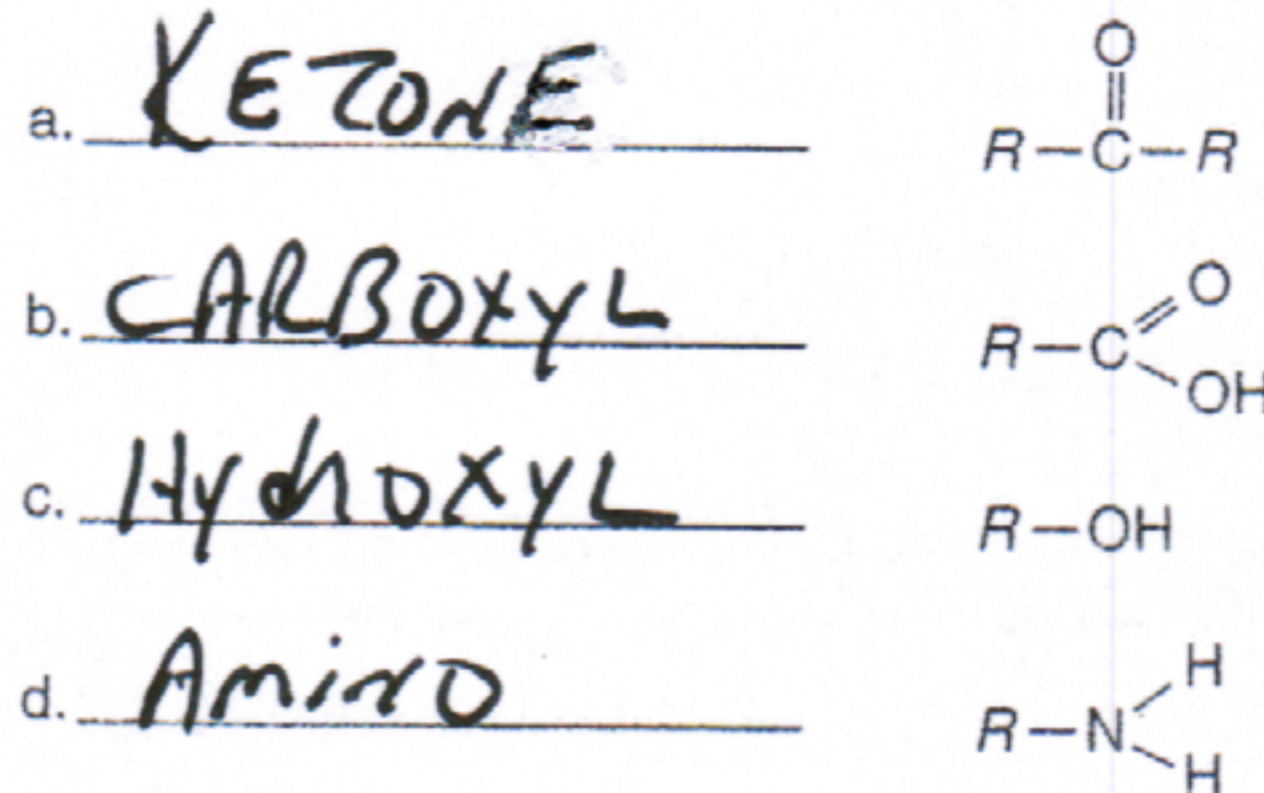 a. KETONE
O
R—C—R
b. CARBOXYL
O
R—C
OH
c. HydROXYL
R—OH
d. AmiNO
H
R—N
H